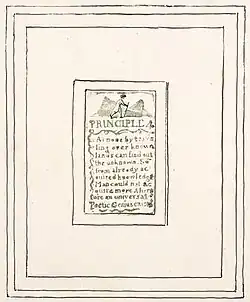 PRINCIPLE 4
As none by trave
ling over known
lands can find out
the unknown. So
from already ac
quired knowledge
Man could not ac
quire more. there
fore an universal
Poetic Genius exists